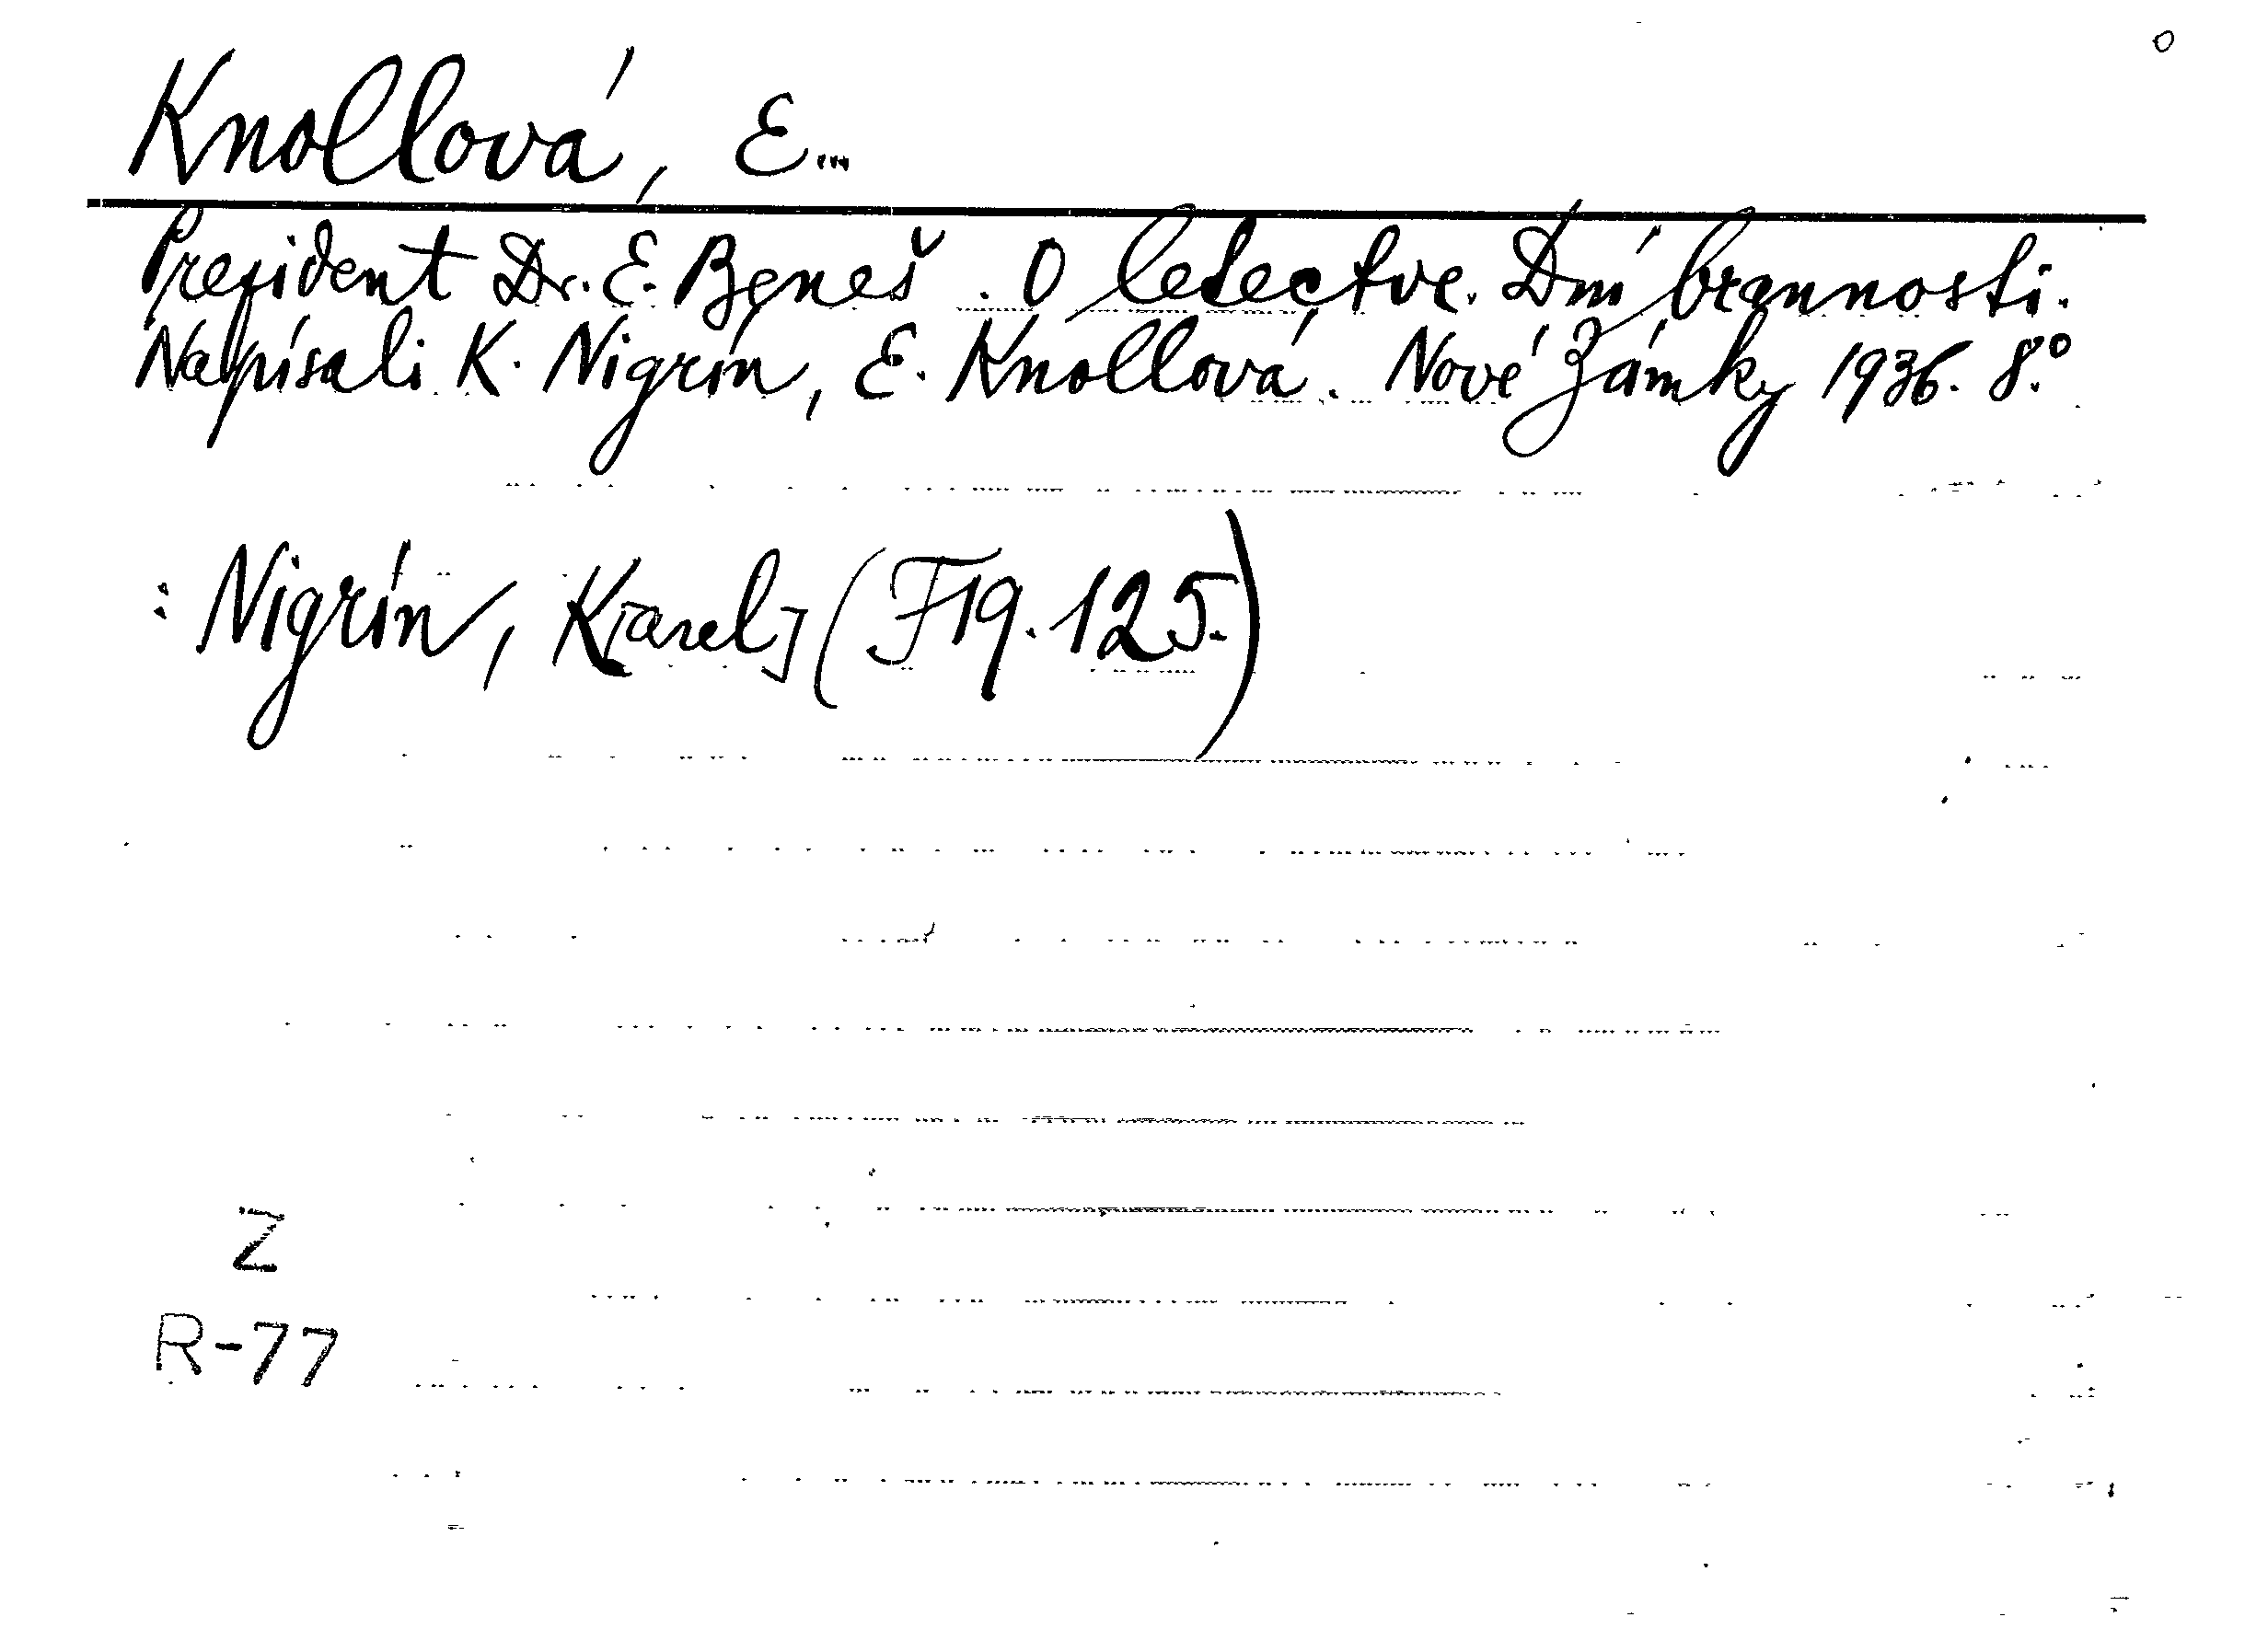 Knollová, E...
Prezident Dr. E. Beneš. O letectve. Dni brannosti.
Napísali K. Nigrín, E. Knollová. Nové Zámky 1936. 8.°
: Nigrín, K[arel] (F19.125.)
Z
R-77